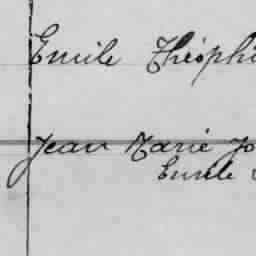 Emile Théophi
Jean Marie Jo
Emile